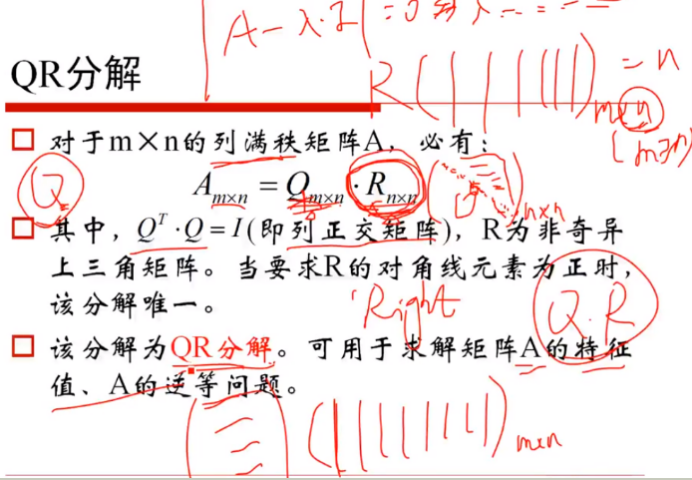 |A-λ·I|=0
QR分解
R( )m×n=n
(m≥n)
□ 对于m×n的列满秩矩阵A，必有：
Q
A m×n = Q m×n · R n×n
n×n
□ 其中，Q^T·Q=I(即列正交矩阵)，R为非奇异
上三角矩阵。当要求R的对角线元素为正时，
该分解唯一。
Right
Q.R
□ 该分解为QR分解。可用于求解矩阵A的特征
值、A的逆等问题。
m×n